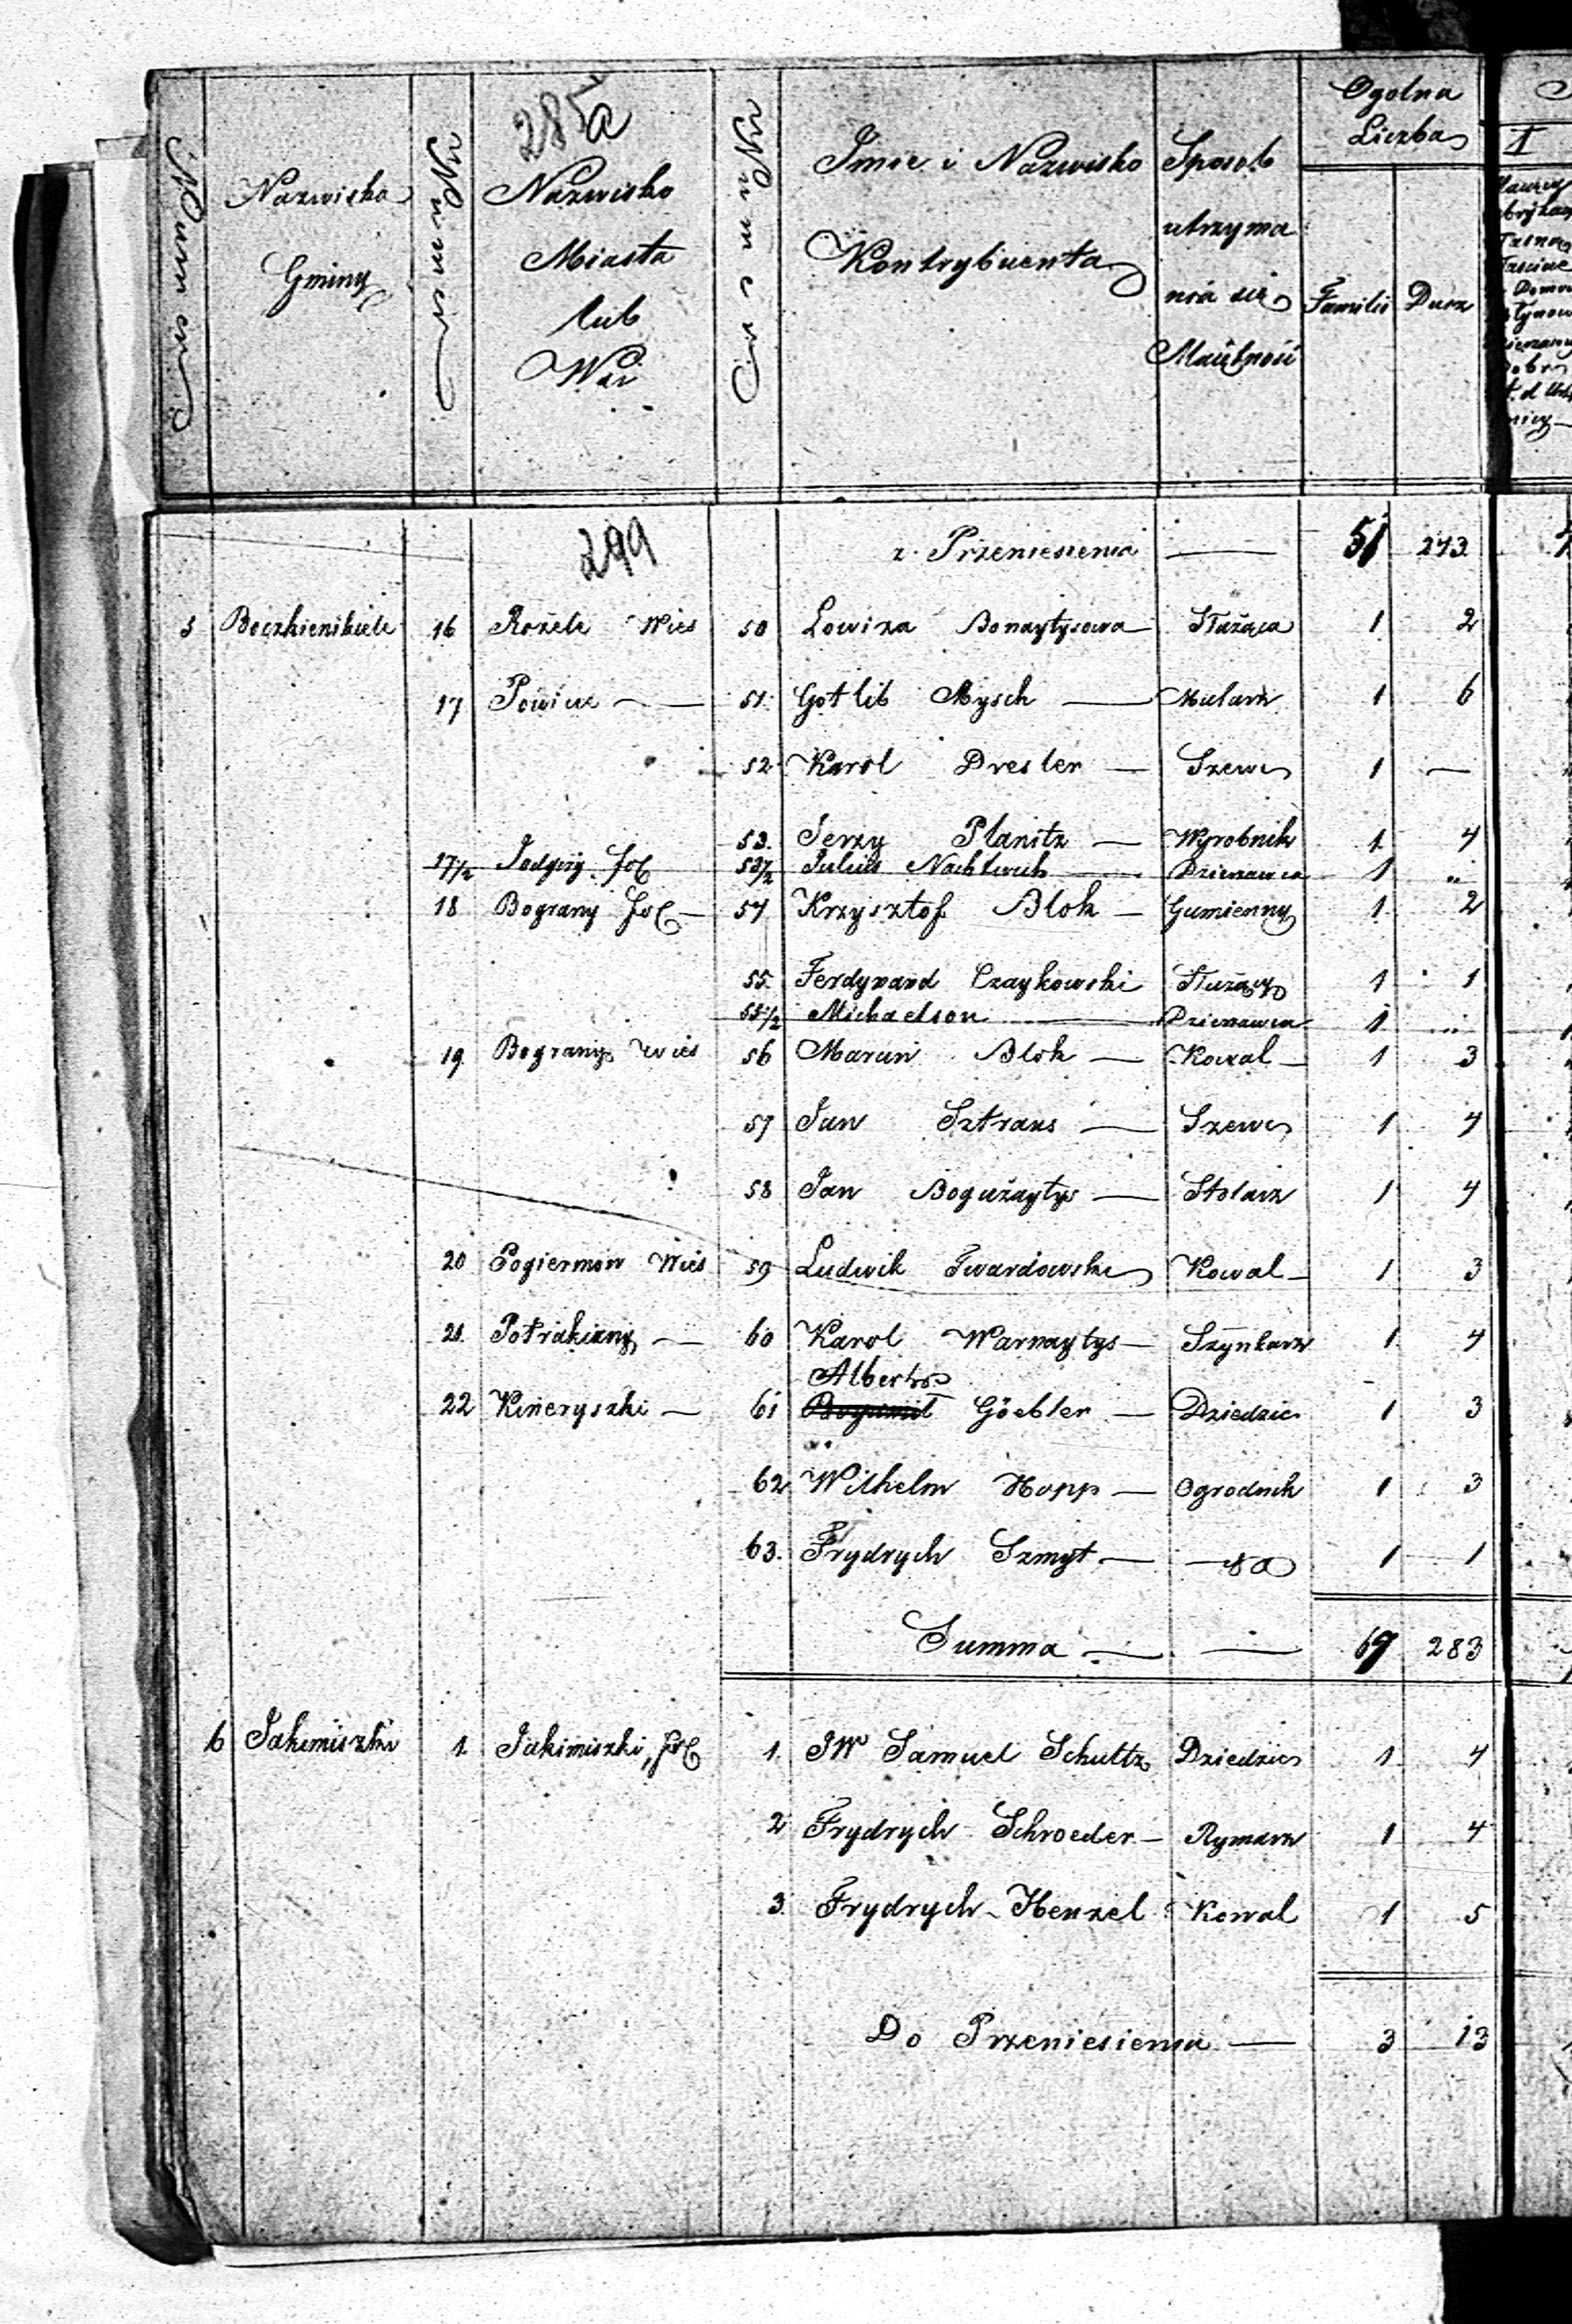 285a
Numer
Nazwisko Gminy
Numer
Nazwisko Miasta lub Wsi
Numer
Imie i Nazwisko Kontrybuenta
Sposob utrzyma nia się Maiętność
Ogolna Liczba
Familii Dusz
I
299
z Przeniesienia — 51 243
5 Boczkienikiele 16 Rożele Wieś 50 Lowiza Bonaytysowa Służąca 1 2
17 — 51 Gotlib Mysch — Mularz 1 6
52 Karol Dresler — Szewc 1 —
53. Jerzy Planitz — Wyrobnik 1 4
17/2 Fol 53/2 Julius — Dzierzawca 1 ..
18 Bograny Fol — 54 Krzysztof Blok — Gumienny 1 2
55. Ferdynand Czaykowski Służący 1 1
55 1/2 Michaelson — Dzierzawca 1 ..
19 Bograny Wieś 56 Marcin Blok — Kowal — 1 3
57 Jan Sztraus — Szewc 1 4
58 Jan Bogużaytys — Stolarz 1 4
20 Pogiermon Wieś 59 Ludwik Twardowski Kowal — 1 3
21. Potrakiany — 60 Karol Warnaytys — Szynkarz 1 4
Albertus
22 Kineryszki — 61 Göebler — Dziedzic 1 3
62 Wilhelm Hopp — Ogrodnik 1 3
63. Frydrych Szmyt — 1 1
Summa — — 67 283
6 Jakimiszki 1. Jakimiszki, Fol 1. JW Samuel Schultz Dziedzic 1 4
2 Frydrych Schroeder — Rymarz 1 4
3. Frydrych Henzel Kowal 1 5
Do Przeniesienia — 3 13